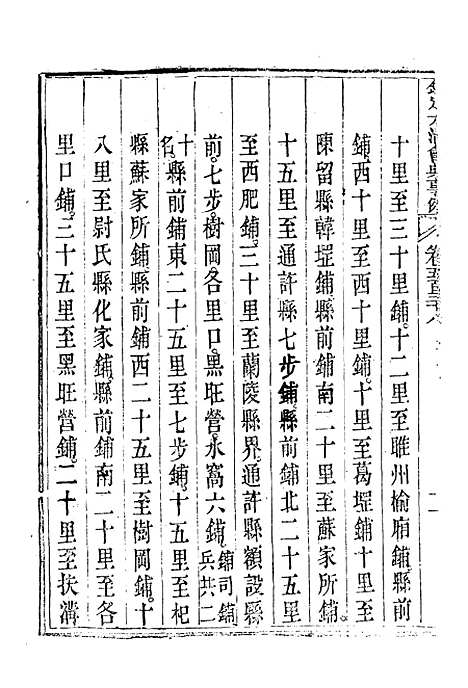 欽定大清會典事例　卷
十里至三十里鋪。十二里至睢州榆廂鋪。縣前
鋪。西十里至西十里鋪。十里至葛堽鋪。十里至
陳留縣韓堽鋪。縣前鋪南二十里至蘇家所鋪。
十五里至通許縣七步鋪。縣前鋪北二十五里
至西肥鋪。三十里至蘭陵縣界。通許縣額設縣
前。七步。樹岡。各里口。黑旺營。水窩六鋪。鋪司鋪兵共二
十名。縣前鋪東二十五里至七步鋪。十五里至杞
縣蘇家所鋪。縣前鋪西二十五里至樹岡鋪。十
八里至尉氏縣化家鋪。縣前鋪南二十里至各
里口鋪。三十五里至黑旺營鋪。二十里至扶溝